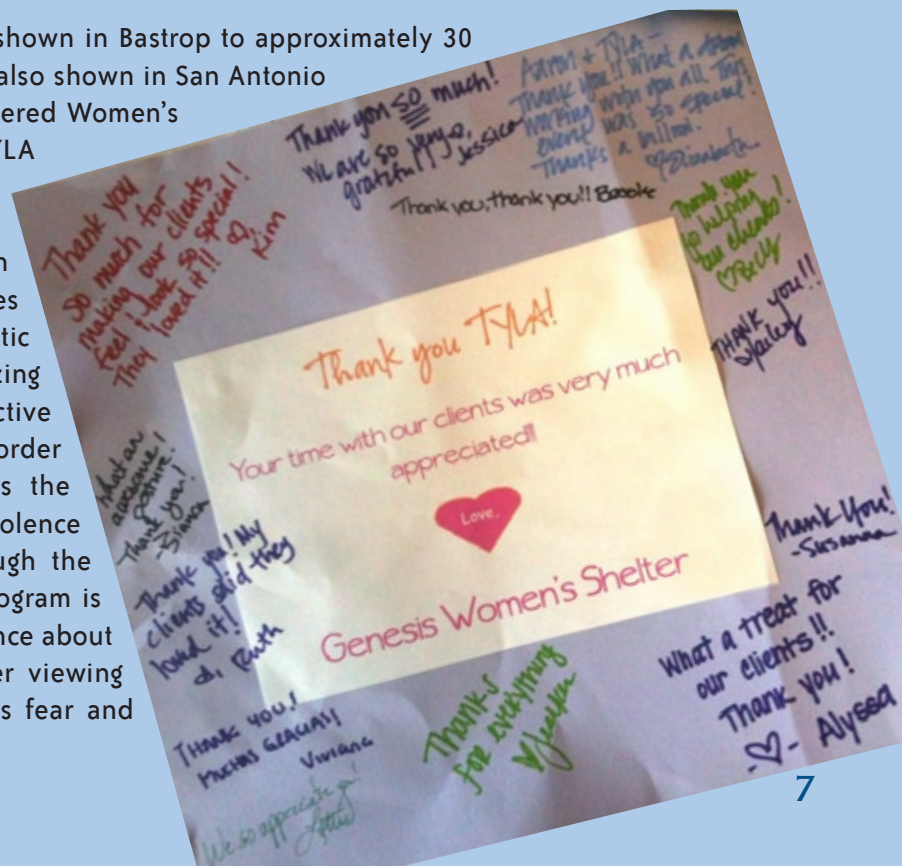 shown in Bastrop to approximately 30
also shown in San Antonio
ered Women's
YLA
n
es
tic
zing
ctive
order
s the
olence
ugh the
ogram is
nce about
er viewing
s fear and
Thank you
so much for
making our clients
feel & look so special!
They loved it!! ♡,
Kim
Thank you SO much!
We are so very
grateful!
Jessica
Aaron + TYLA -
Thank you!! What a
working with you all. This
event was so special!
Thanks a billion.
♡ Elizabeth
Thank you, thank you!! Brooke
Thank you
for helping
our clients!
♡ Becky
THANK YOU!!
Hailey
Thank you TYLA!
Your time with our clients was very much
appreciated!!
Love,
Genesis Women's Shelter
What an
awesome
Thank you!
-Bianca
Thank you! My
clients said they
loved it!
Ruth
Thank You!
-Susanna
What a treat for
our clients!!
Thank you!
-♡- Alyssa
THANK YOU!
MUCHAS GRACIAS!
Viviana
Thanks
for everything
♡ Jennifer
We so appreciate you!
Lottie
7